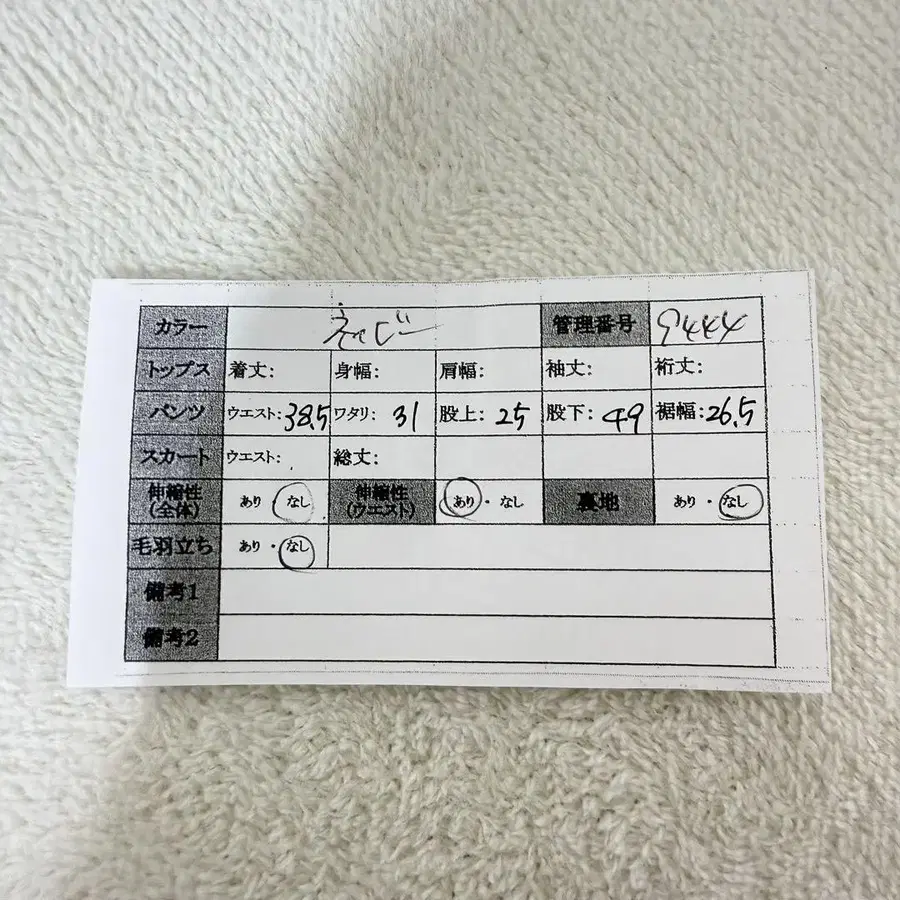 カラー ネイビー 管理番号 9444
トップス 着丈: 身幅: 肩幅: 袖丈: 裄丈:
パンツ ウエスト: 38.5 ワタリ: 31 股上: 25 股下: 49 裾幅: 26.5
スカート ウエスト: 総丈:
伸縮性(全体) あり なし 伸縮性(ウエスト) あり・なし 裏地 あり・なし
毛羽立ち あり・なし
備考1
備考2